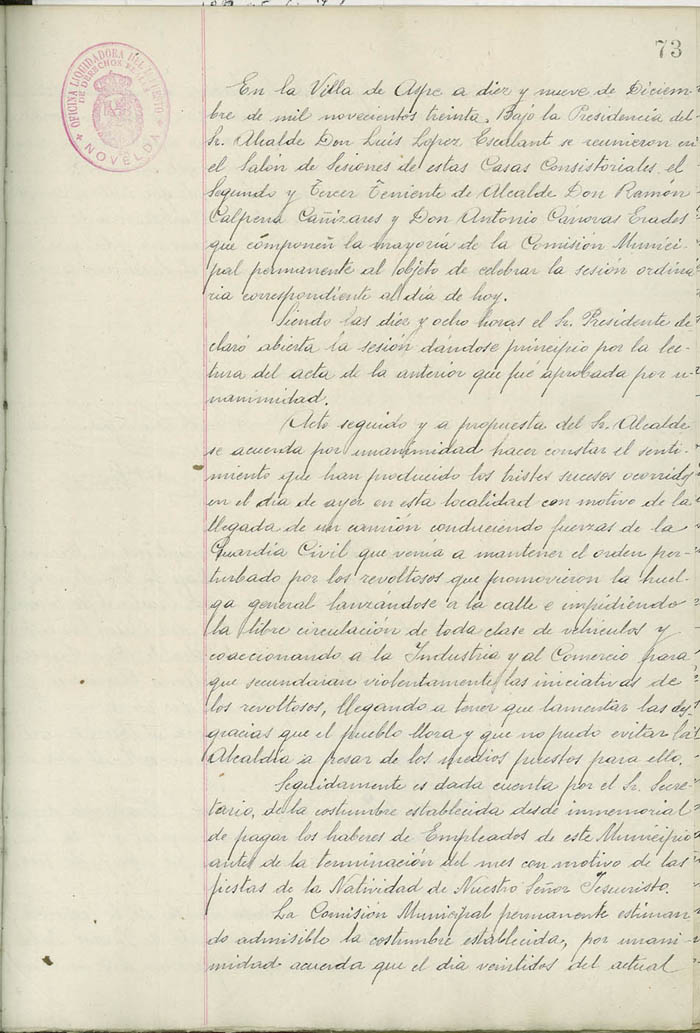 73
OFICINA LIQUIDADORA DEL IMPUESTO
DE DERECHOS REALES
NOVELDA
En la Villa de Aspe a diez y nueve de Diciem-
bre de mil novecientos treinta. Bajo la Presidencia del
Sr. Alcalde Don Luis López Escalant se reunieron en
el Salón de Sesiones de estas Casas Consistoriales, el
Segundo y Tercer Teniente de Alcalde Don Ramón
Calpena Cañizares y Don Antonio Cánovas Erades
que componen la mayoría de la Comisión Munici-
pal permanente al objeto de celebrar la sesión ordina
ria correspondiente al día de hoy.
Siendo las diez y ocho horas el Sr. Presidente de
claró abierta la sesión dándose principio por la lec-
tura del acta de la anterior que fué aprobada por u-
nanimidad.
Acto seguido y a propuesta del Sr. Alcalde
se acuerda por unanimidad hacer constar el senti-
miento que han producido los tristes sucesos ocurridos
en el día de ayer en esta localidad con motivo de la
llegada de un camión conduciendo fuerzas de la
Guardia Civil que venía a mantener el orden per-
turbado por los revoltosos que promovieron la huel-
ga general lanzándose a la calle e impidiendo
la libre circulación de toda clase de vehículos y
coaccionando a la Industria y al Comercio para
que secundaran violentamente las iniciativas de
los revoltosos, llegando a tener que lamentar las des
gracias que el pueblo llora y que no pudo evitar la
Alcaldía a pesar de los medios puestos para ello.
Seguidamente es dada cuenta por el Sr. Secre-
tario, de la costumbre establecida desde inmemorial
de pagar los haberes de Empleados de este Municipio
antes de la terminación del mes con motivo de las
fiestas de la Natividad de Nuestro Señor Jesucristo.
La Comisión Municipal permanente estiman
do admisible la costumbre establecida, por unani-
midad acuerda que el día veintidos del actual